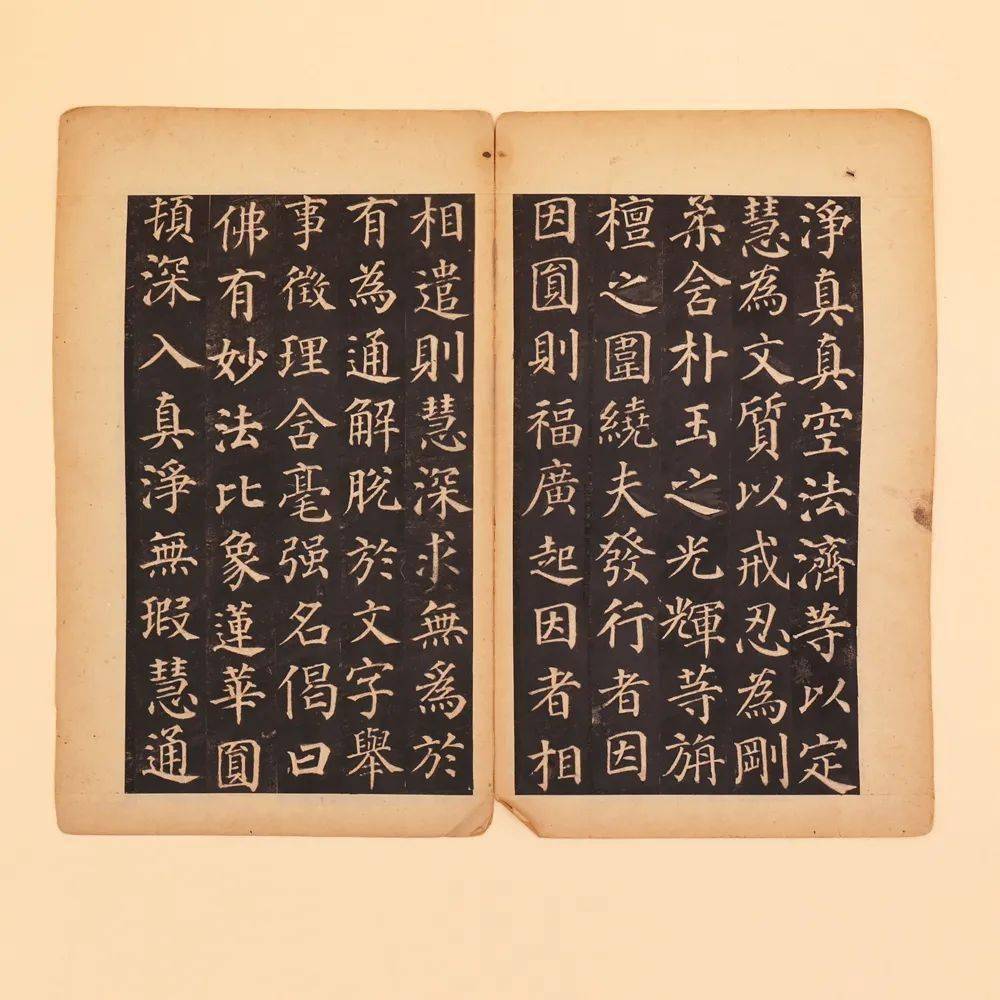 淨真真空法濟等以定
慧為文質以戒忍為剛
柔含朴玉之光輝等旃
檀之圍繞夫發行者因
因圓則福廣起因者相
相遣則慧深求無爲於
有為通解脫於文字舉
事徵理含毫强名偈曰
佛有妙法比象蓮華圓
頓深入真淨無瑕慧通